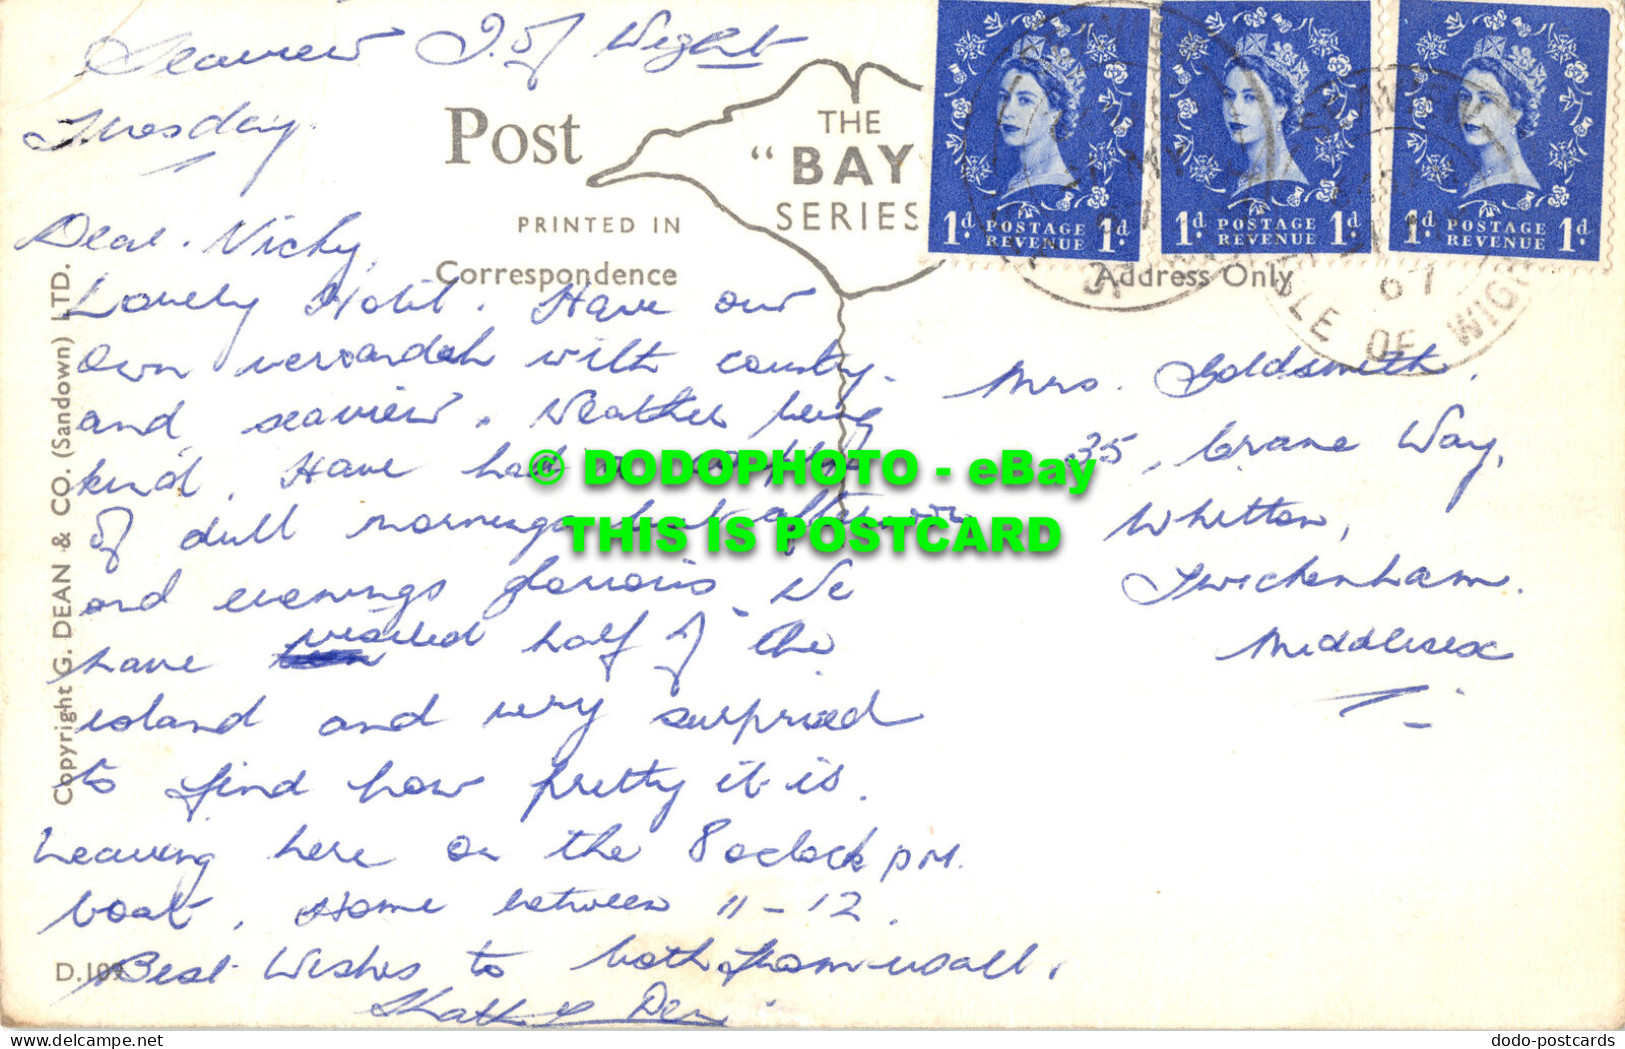 Seaview I. of Wight
Tuesday.
Post
THE
"BAY
SERIES
PRINTED IN
Correspondence
Address Only
1d POSTAGE REVENUE 1d.
1d POSTAGE REVENUE 1d.
1d POSTAGE REVENUE 1d.
ISLE OF WIGHT
Dear Nicky,
Lovely Hotel. Have our
own verandah with country
and seaview. Weather being
kind. Have had a couple
of dull mornings but afternoon
and evenings glorious. We
have visited half of the
island and very surprised
to find how pretty it is.
Leaving here on the 8 oclock pm.
boat. Home between 11-12.
Best Wishes to both from us all.
Den
Mrs. Goldsmith,
35, Crane Way,
Whitton,
Twickenham.
Middlesex
Copyright G. DEAN & CO. (Sandown) LTD.
© DODOPHOTO - eBay
THIS IS POSTCARD
dodo-postcards